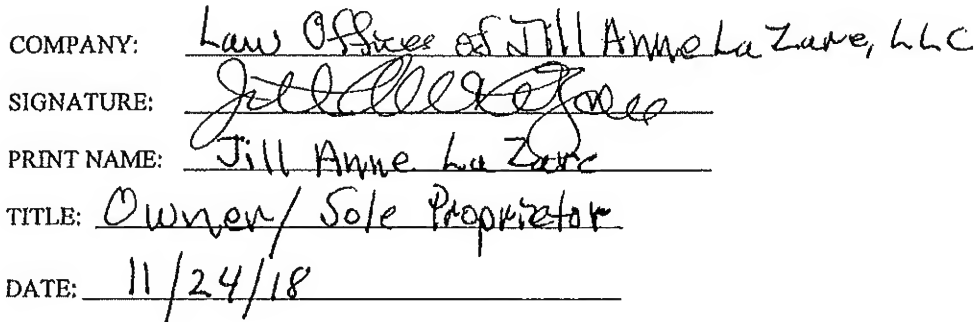 COMPANY: Law Offices of Jill Anne La Zare, LLC
SIGNATURE:
PRINT NAME: Jill Anne La Zare
TITLE: Owner/ Sole Proprietor
DATE: 11/24/18